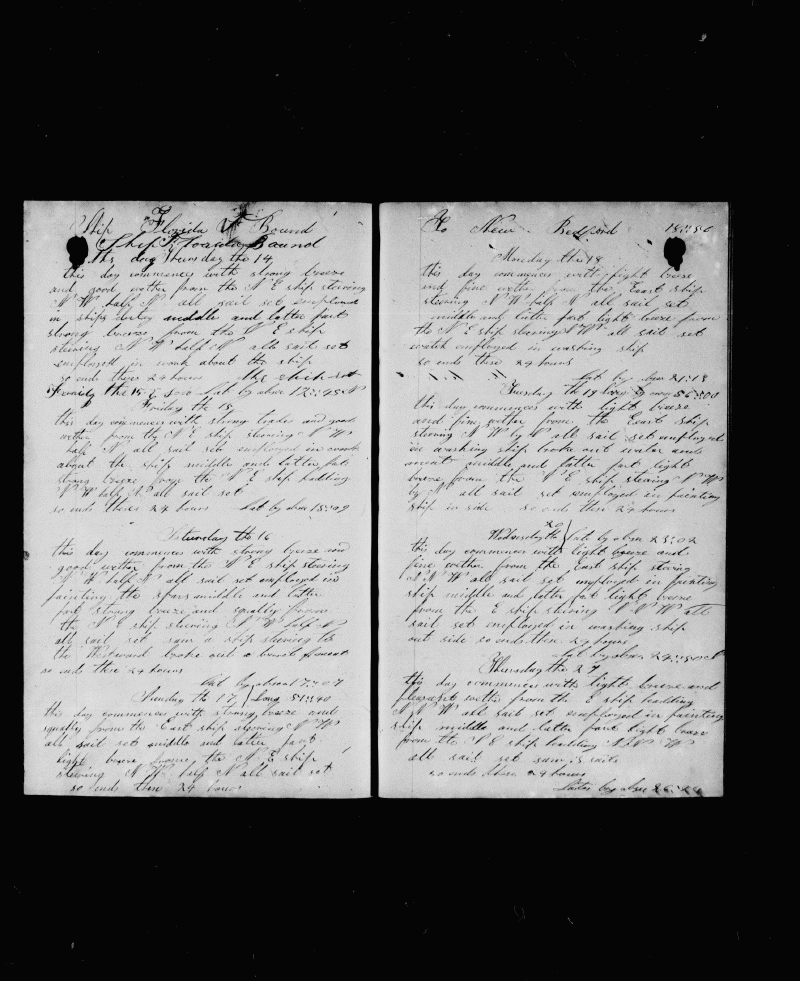 Ship Florida Bound
Ship Florida Bound
this day Thursday the 14
this day commences with strong breeze
and good wether from the N E ship steering
N W half N all sail set employed
in ships duty middle and latter part
strong breeze from the N E ship
steering N W half N all sail set
employed in work about the ship
so ends theas 24 hours
Lat by obser 12::45 N
Friday the 15
this day commences with strong trades and good
wether from the N E ship steering N W
half N all sail set employed in work
about the ship middle and latter part
strong breeze from the N E ship heading
N W half N all sail set
so ends theas 24 hours Lat by obser 15::09
Saturday the 16
this day commences with strong breeze and
good wether from the N E ship steering
N W half N all sail set employed in
painting the spars middle and latter
part strong breeze and squally from
the N E ship steering N W half N
all sail set saw a ship steering to
the Westward broke out a barrel of meat
so ends these 24 hours
Lat by obser 17::07
Sunday the 17 Long 51::40
this day commences with strong breeze and
squally from the East ship steering N W
all sail set middle and latter part
light breeze from the N E ship
steering N W half N all sail set
so ends these 24 hours
To New Bedford
Monday the 18
this day commences with light breeze
and fine wether from the East ship
steering N W half N all sail set
middle and latter part light breeze from
the N E ship steering N W all sail set
watch employed in washing ship
so ends these 24 hours
Lat by obser 21::18
Tuesday the 19 Long by obser 56::00
this day commences with light breeze
and fine wether from the East ship
steering N W by N all sail set employed
in washing ship broke out water and
meat middle and latter part light
breeze from the N E ship steering N W
by N all sail set employed in painting
ship in side so ends these 24 hours
Wednesday the 20 Lat by obser 23::02
this day commences with light breeze and
fine wether from the East ship steering
N N W all sail set employed in painting
ship middle and latter part light breeze
from the E ship steering N N W all
sail set employed in washing ship
out side so ends these 24 hours
Lat by obser 24::50 N
Thursday the 21
this day commences with light breeze and
pleasant wether from the E ship heading
N N W all sail set employed in painting
ship middle and latter part light breeze
from the S E ship heading N N W
all sail set saw 3 sails
so ends these 24 hours
Latter by obser